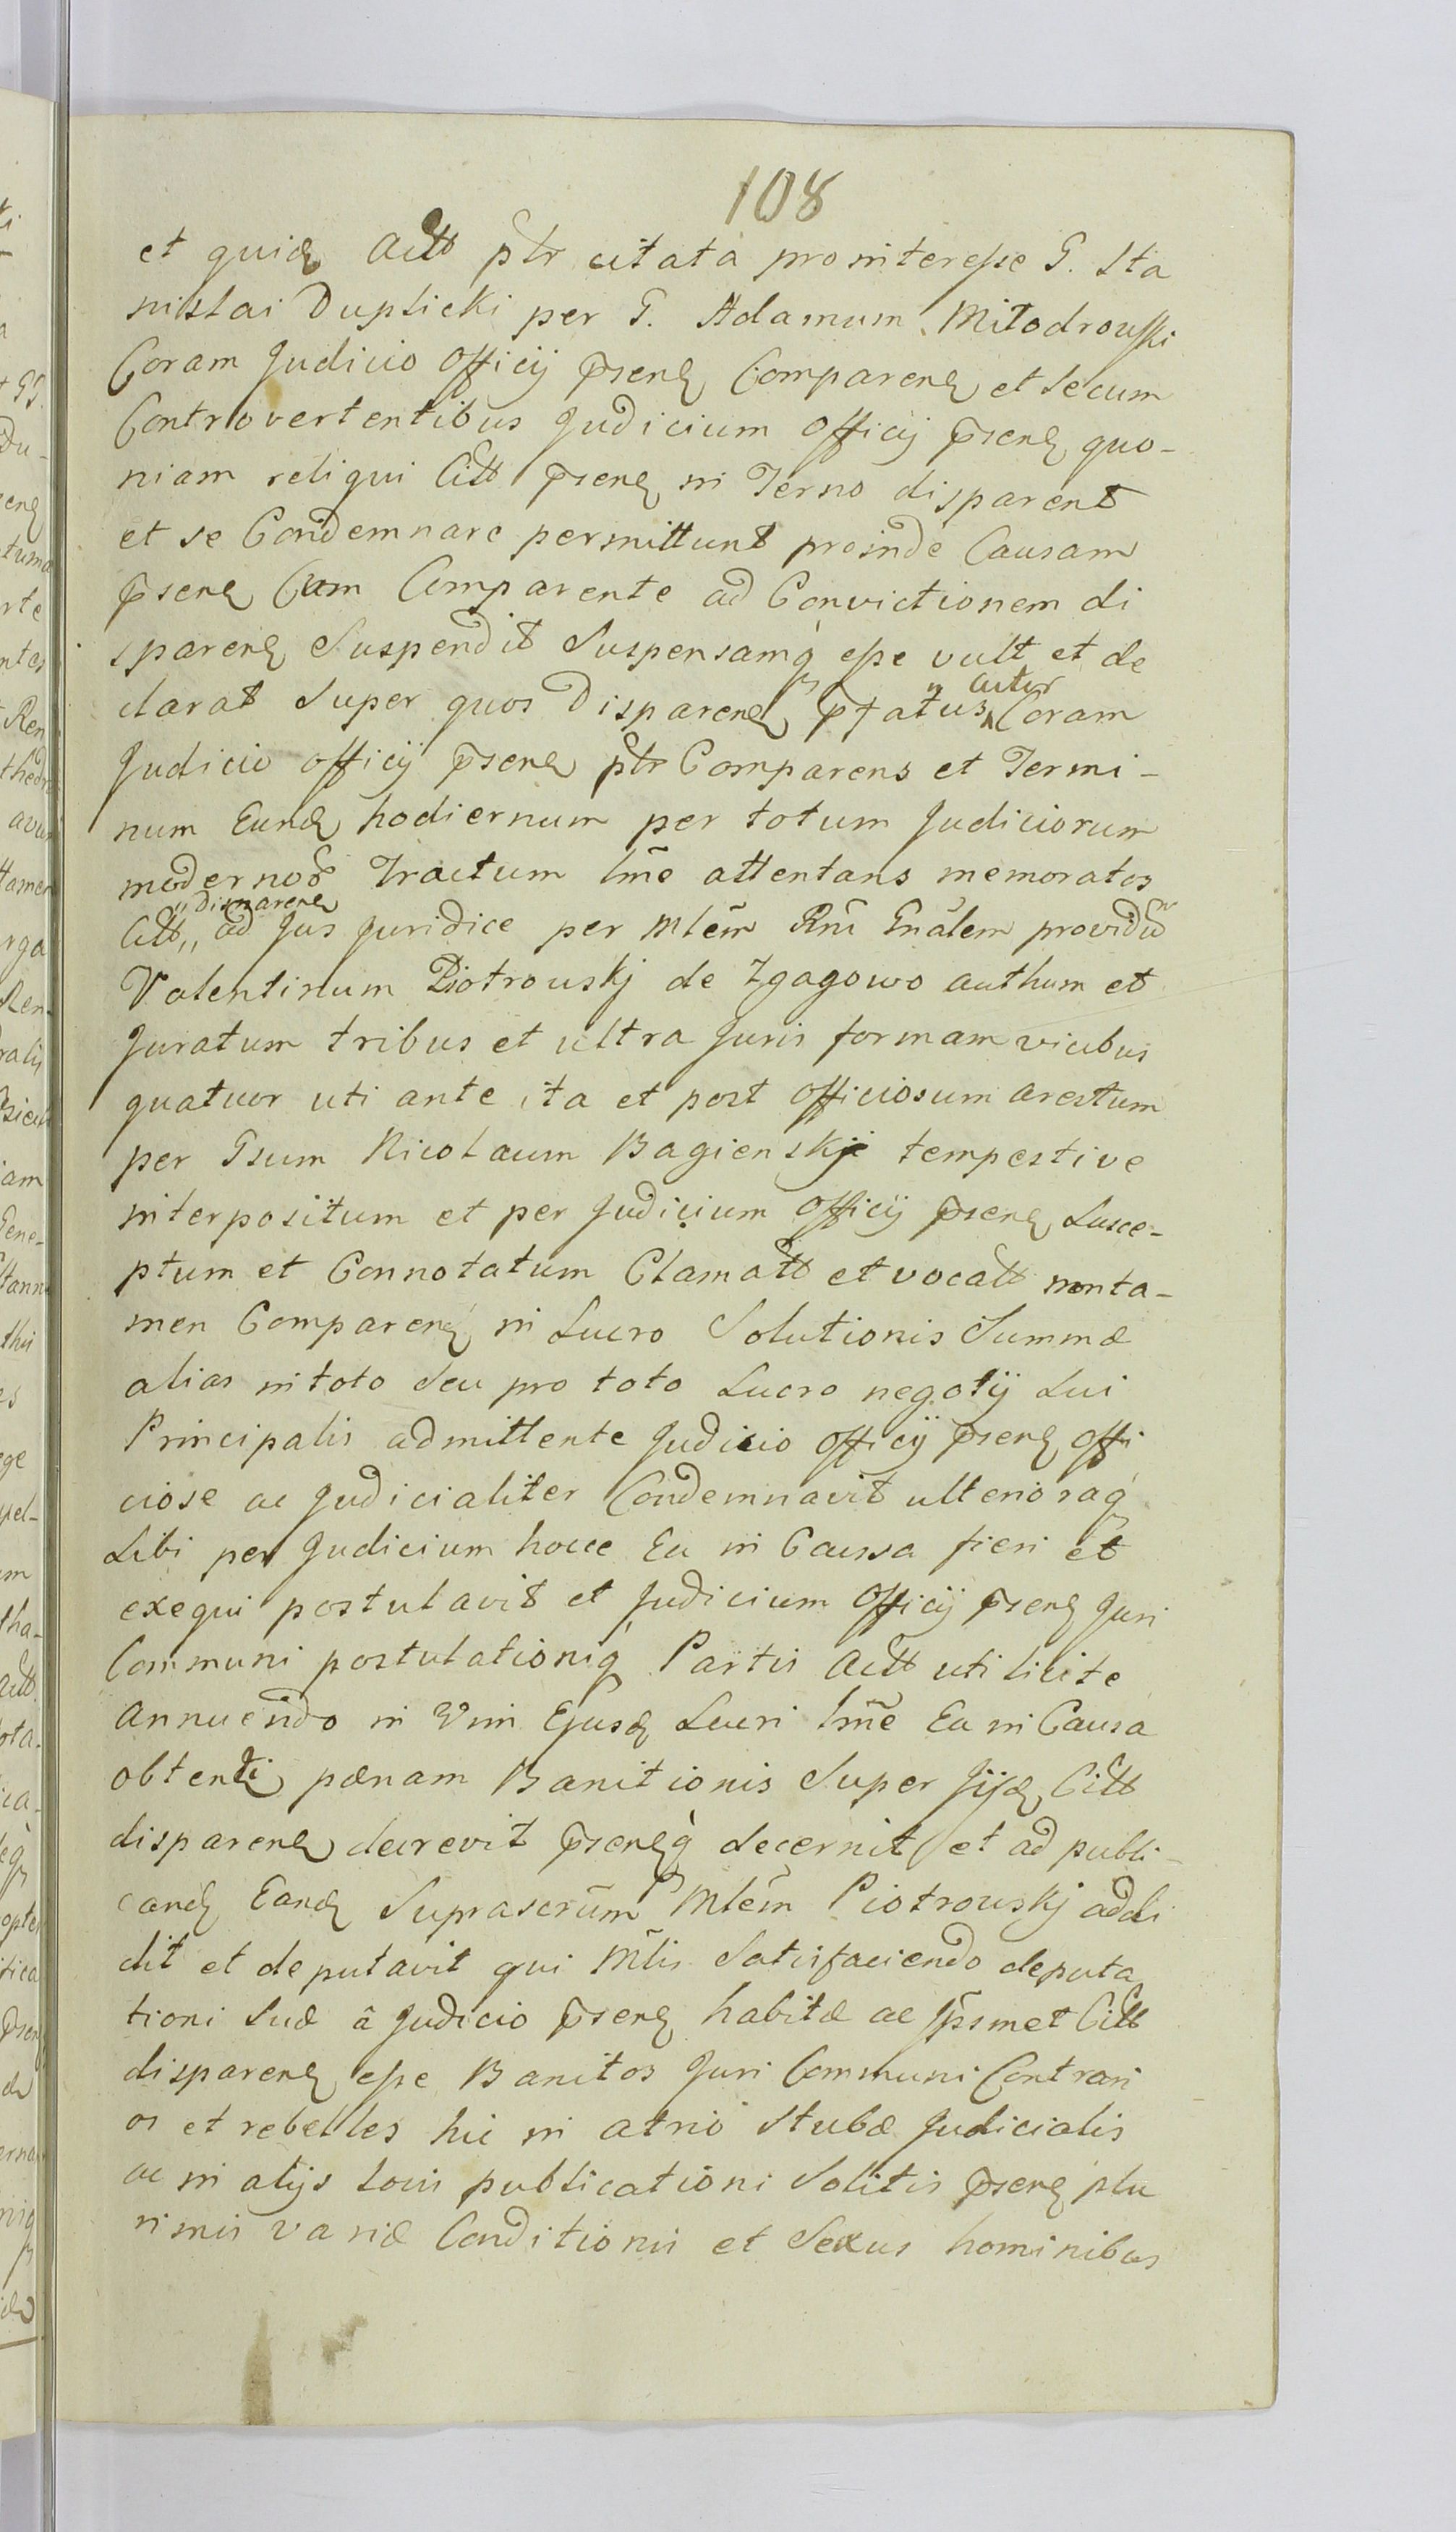 108
et quidē Actt ptr citata pro interesse G. Sta
nislai Duplicki per G. Adamum Miłodrowski
Coram Judicio Officij p̄senē Comparenē et secum
Controvertentibus Judicium Officij p̄senē quo-
niam reliqui Citt p̄senē in Terno disparent
et se Condemnare permittunt proinde Causam
p̄senē Cum Comparente ad Convictionem di
sparenē Suspendit Suspensamq̨ esse vult et de
clarat Super quos Disparenē p̄fatus Actor Coram
Judicio officij p̄senē ptr Comparens et Termi-
num Eundē hodiernum per totum Judiciorum
modernor Tractum lm̄e attentans memoratos
Citt „disparenē„ ad Jus Juridice per Mlēm Rni Gnālem providū
Valentinum Piotrouskj de Zgagowo authum et
Juratum tribus et ultra Juris formam vicibus
quatuor uti ante ita et post Officiosum arestum
per Gsum Nicolaum Bagienskj tempestive
interpositum et per Judicium Officij p̄senē Susce-
ptum et Connotatum Clamatt et vocatt non ta-
men Comparenē in Lucro Solutionis Summæ
alias in toto seu pro toto Lucro negotij Sui
Principalis admittente Judicio Officij p̄senē offi
ciose ac Judicialiter Condemnavit ulterioraq̨
Sibi per Judicium hocce Ea in Caussa fieri et
exequi postulavit et Judicium Officij p̄senē Juri
Communi postulationiq̨ Partis Actt uti licite
Annuendo in Vim Ejusdē Lucri lm̄e Ea in Causa
obtenti pœnam Banitionis Super Iijdē Citt
disparenē decrevit p̄senēq̨ decernit et ad publi-
candē Eandē Suprascrūm Mlēm Piotrouskj addi
dit et deputavit qui Mlis Satisfaciendo deputa
tioni Suæ â Judicio p̄senē habitæ ac Ipsmet Citt
disparenē esse Banitos Juri Communi Contrari
os et rebelles hic in atrio Stubæ Judicialis
ac in alijs locis publicationi Solitis p̄senē plu
rimis variæ Conditionis et Sexus hominibus